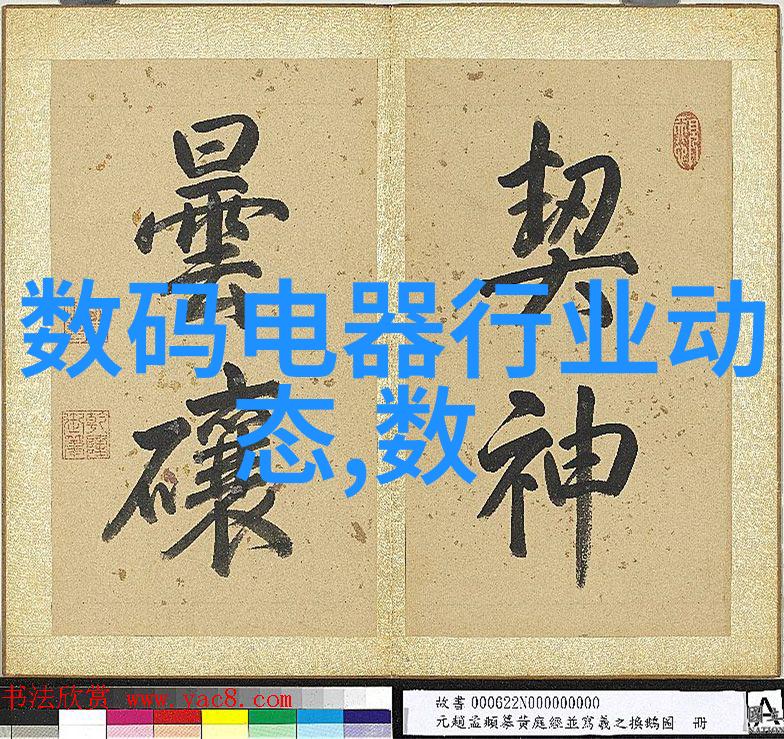 契神
曇
数码电器行业动
态,数
书法欣赏 www.yac8.com
故書 000622N000000000
元趙孟頫摹黃庭經並寫羲之換鵝圖 冊